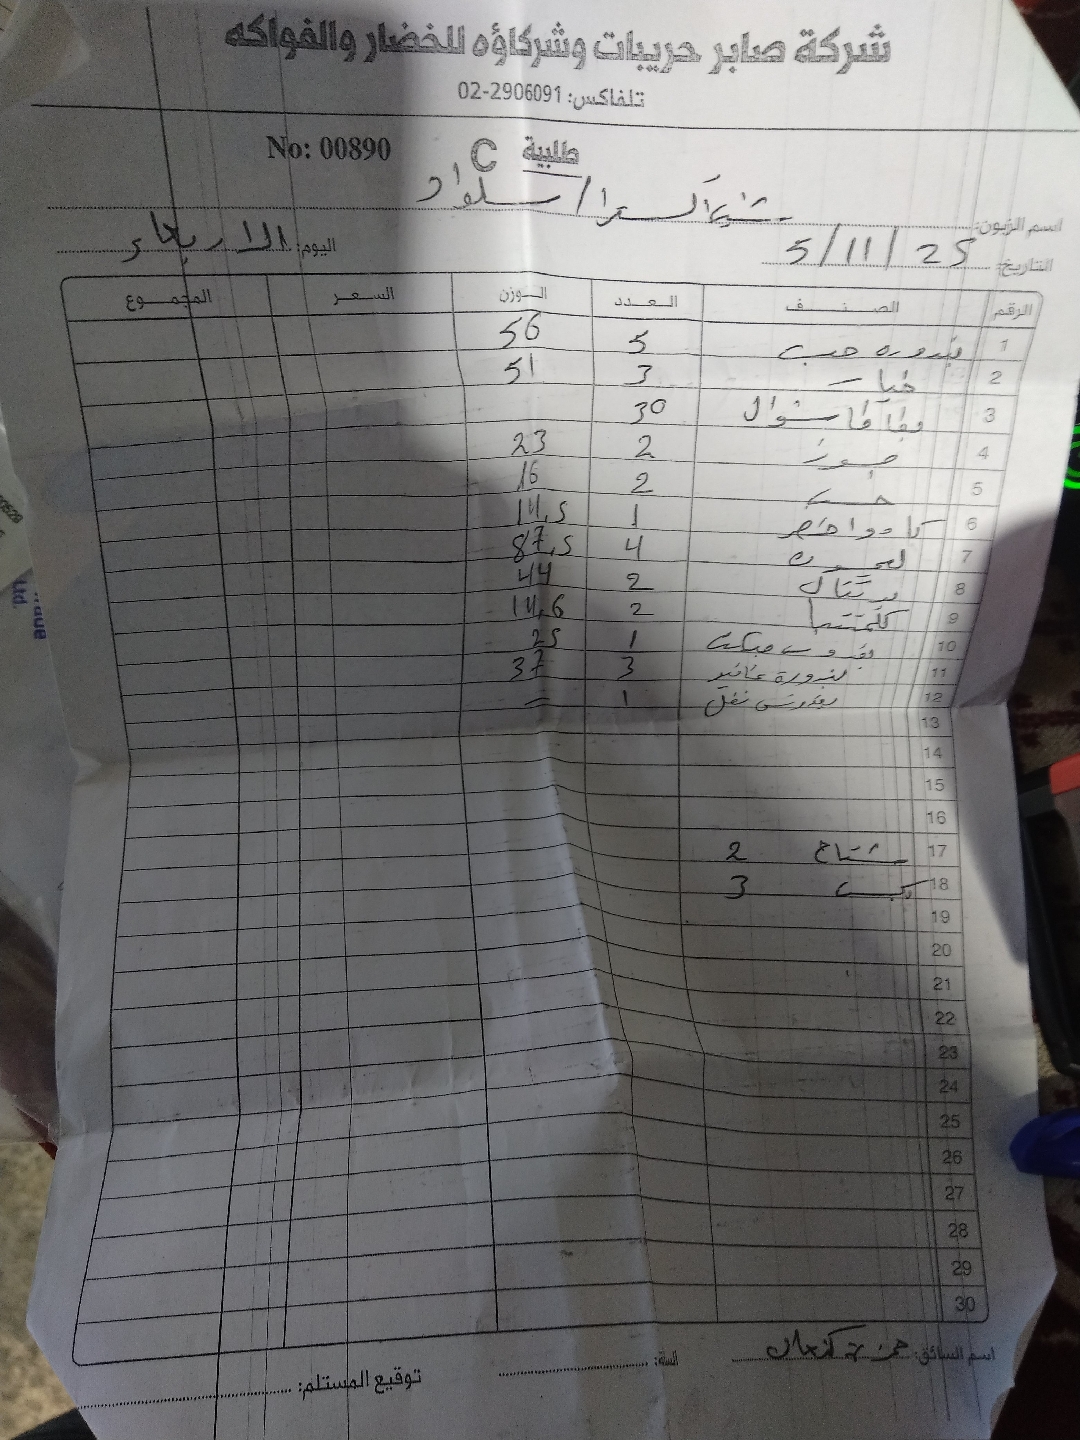 شركة صابر حريبات وشركاؤه للخضار والفواكه
تلفاكس: 02-2906091
طلبية C No: 00890
اسم الزبون: سلواد
التاريخ: 5/11/25 اليوم: الاربعاء
الرقم الصنف العدد الوزن السعر المجموع
1 بندوره حب 5 56
2 خيار 3 51
3 بطاطا شوال 30
4 موز 2 23
5 2 16
6 1 14,5
7 4 87,5
8 برتقال 2 44
9 كلمنتينا 2 14,6
10 1 25
11 بندورة عناقيد 3 37
12 1 -
13
14
15
16
17 مشتاح 2
18 3
19
20
21
22
23
24
25
26
27
28
29
30
اسم السائق: حمزة كنعان
توقيع المستلم: